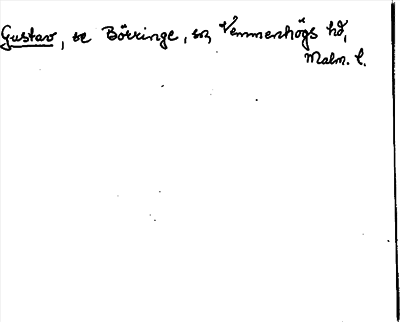 Gustav, se Börringe, sn, Vemmenhögs hd,
Malm. l.